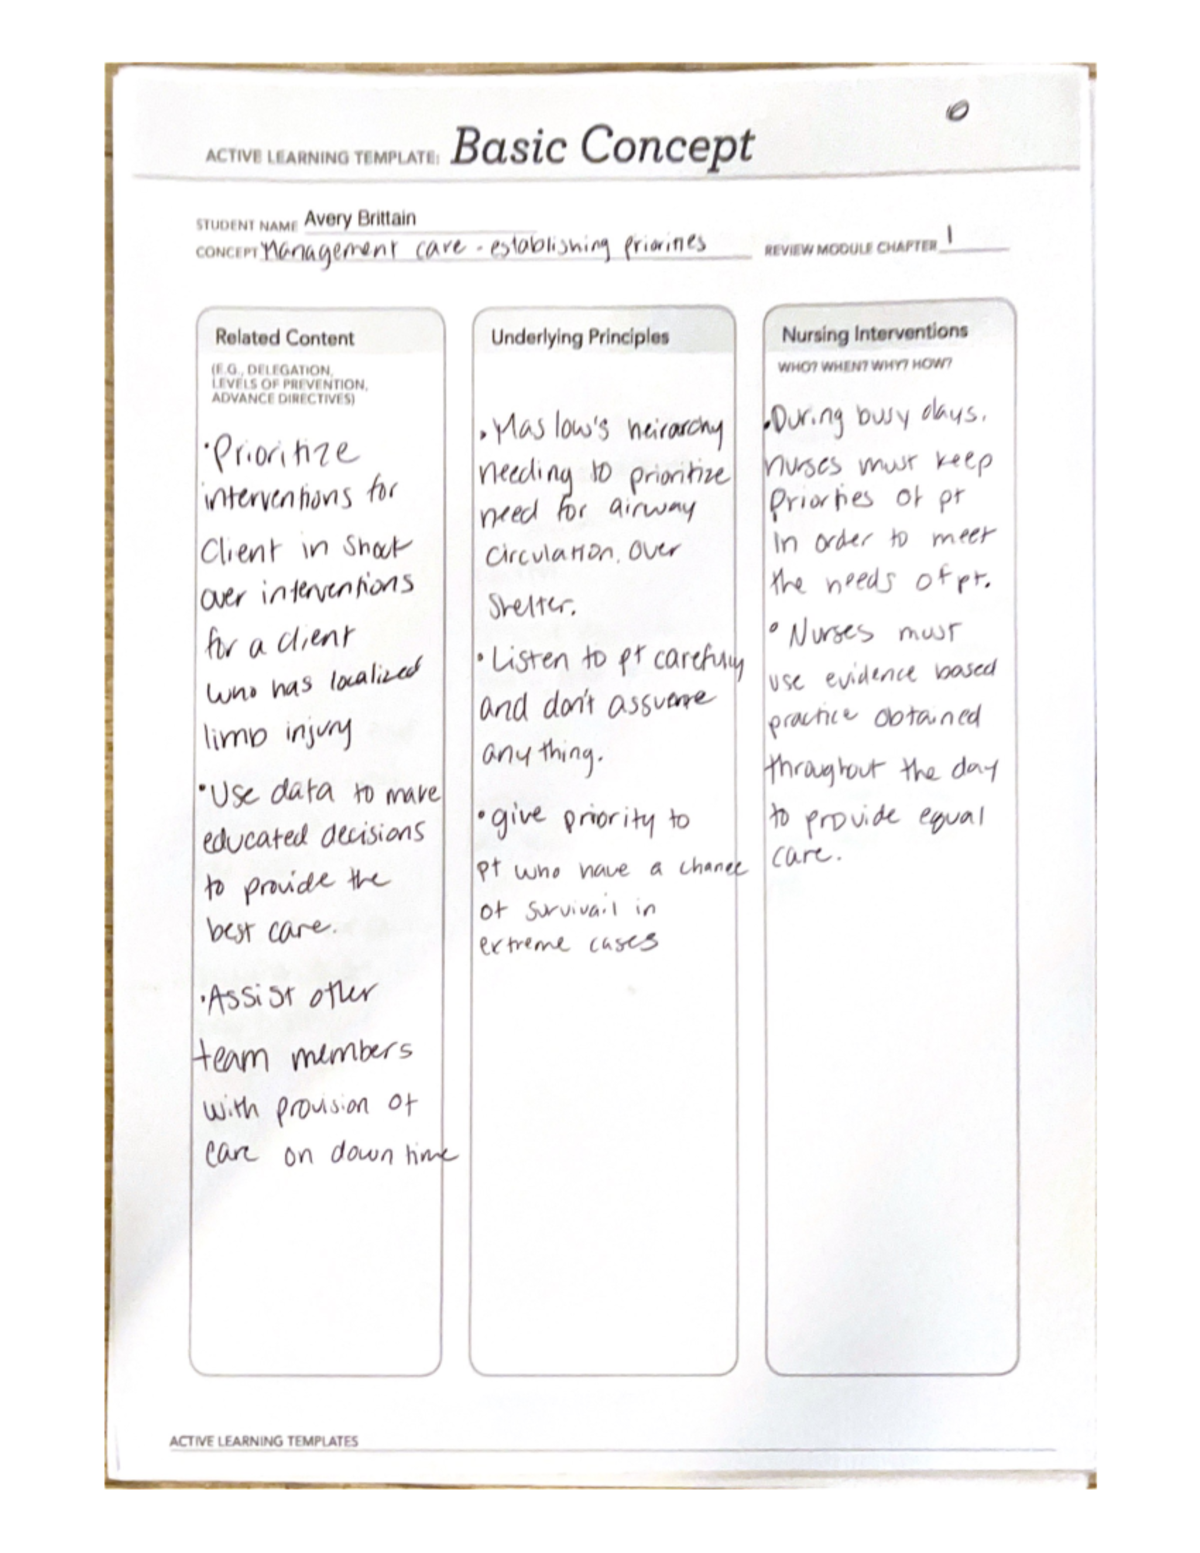 ACTIVE LEARNING TEMPLATE: Basic Concept
STUDENT NAME Avery Brittain
CONCEPT Management care - establishing priorities
REVIEW MODULE CHAPTER 1
Related Content
(E.G., DELEGATION,
LEVELS OF PREVENTION,
ADVANCE DIRECTIVES)
•Prioritize
interventions for
Client in Shock
over interventions
for a client
who has localized
limb injury
•Use data to make
educated decisions
to provide the
best care.
•Assist other
team members
with provision of
care on down time
Underlying Principles
•Maslow's heirarchy
needing to prioritize
need for airway
circulation. over
shelter.
•Listen to pt carefully
and don't assume
anything.
•give priority to
pt who have a chance
of survivail in
extreme cases
Nursing Interventions
WHO? WHEN? WHY? HOW?
•During busy days.
nurses must keep
Priorities of pt
In order to meet
the needs of pt.
•Nurses must
use evidence based
practice obtained
throughout the day
to provide equal
care.
ACTIVE LEARNING TEMPLATES